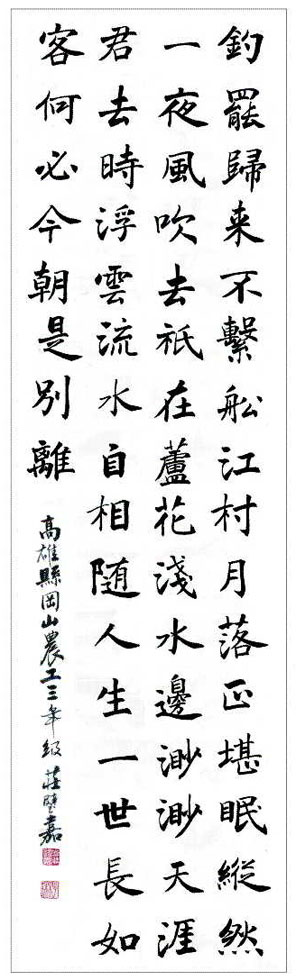 釣罷歸来不繫船江村月落正堪眠縱然
一夜風吹去祇在蘆花淺水邊渺渺天涯
君去時浮雲流水自相随人生一世長如
客何必今朝是別離
高雄縣岡山農工三年級莊璧嘉